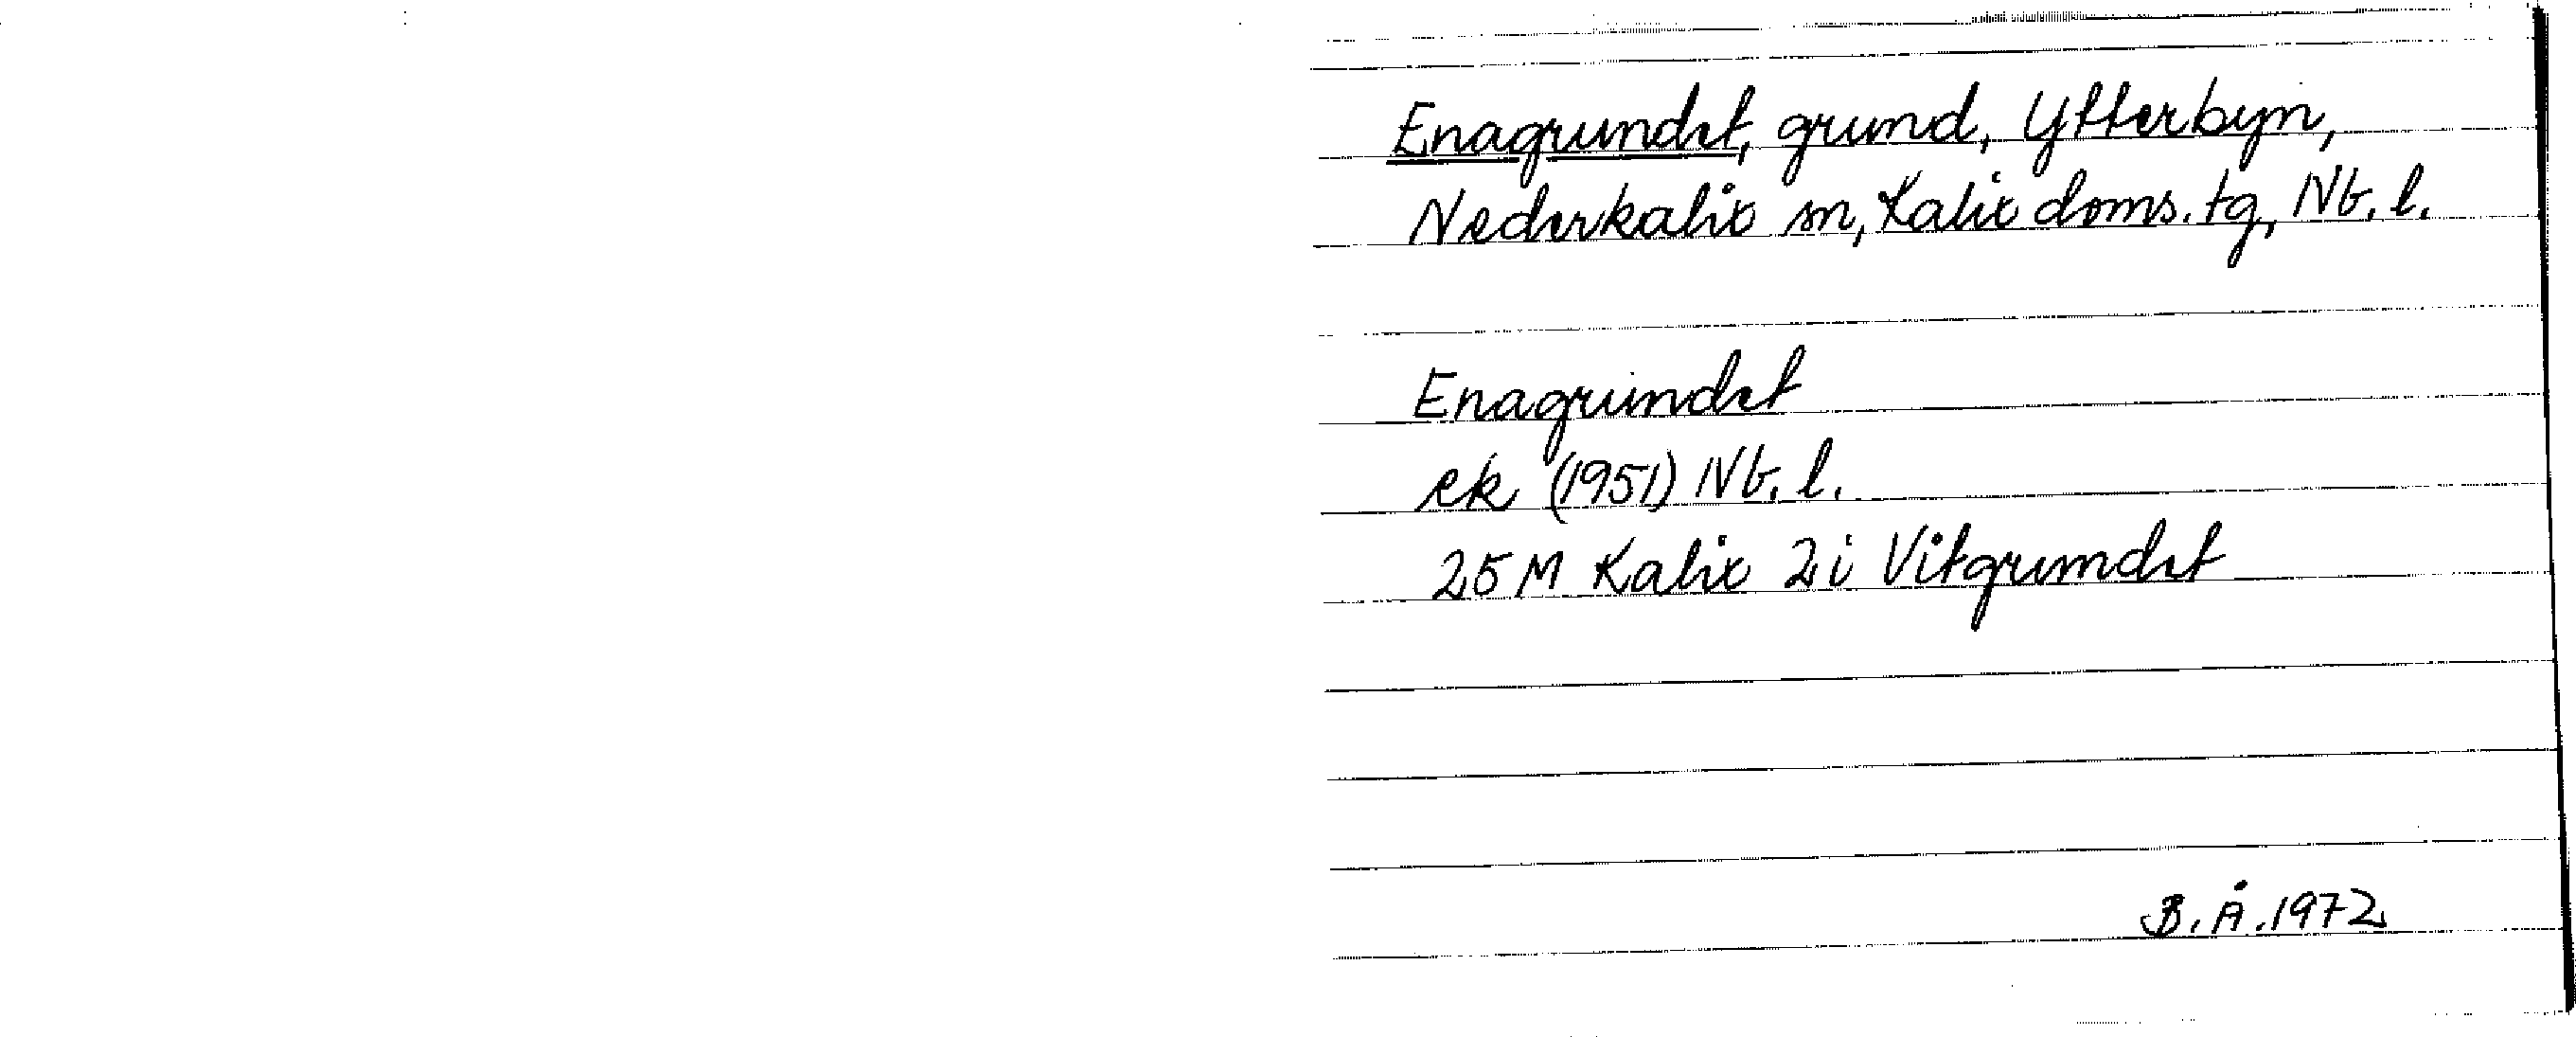 Enagrundet, grund, Ytterbyn,
Nederkalix sn, Kalix doms. tg, Nb. l.
Enagrundet
ek (1951) Nb. l.
25 M Kalix 2 i Vitgrundet
B. Å. 1972